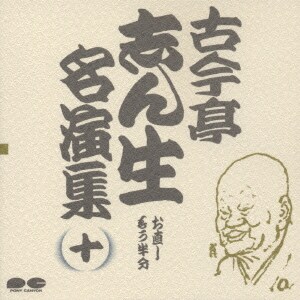 古今亭
志ん生
名演集
十
お直し
もう半分
PONY CANYON